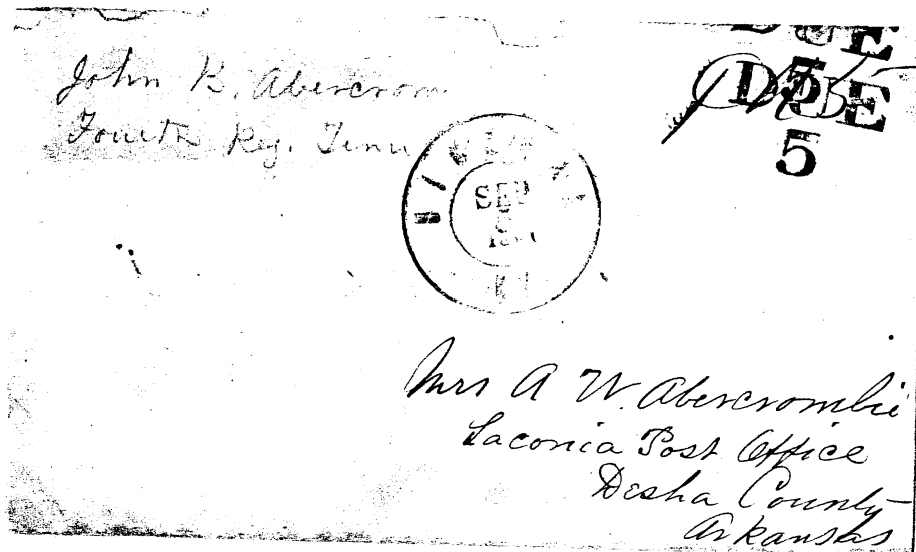 John K. Abercrom
Fourth Reg. Tenn
DUE
5
DUE
5
SEP
Mrs A W. Abercrombie
Laconia Post Office
Desha County
Arkansas